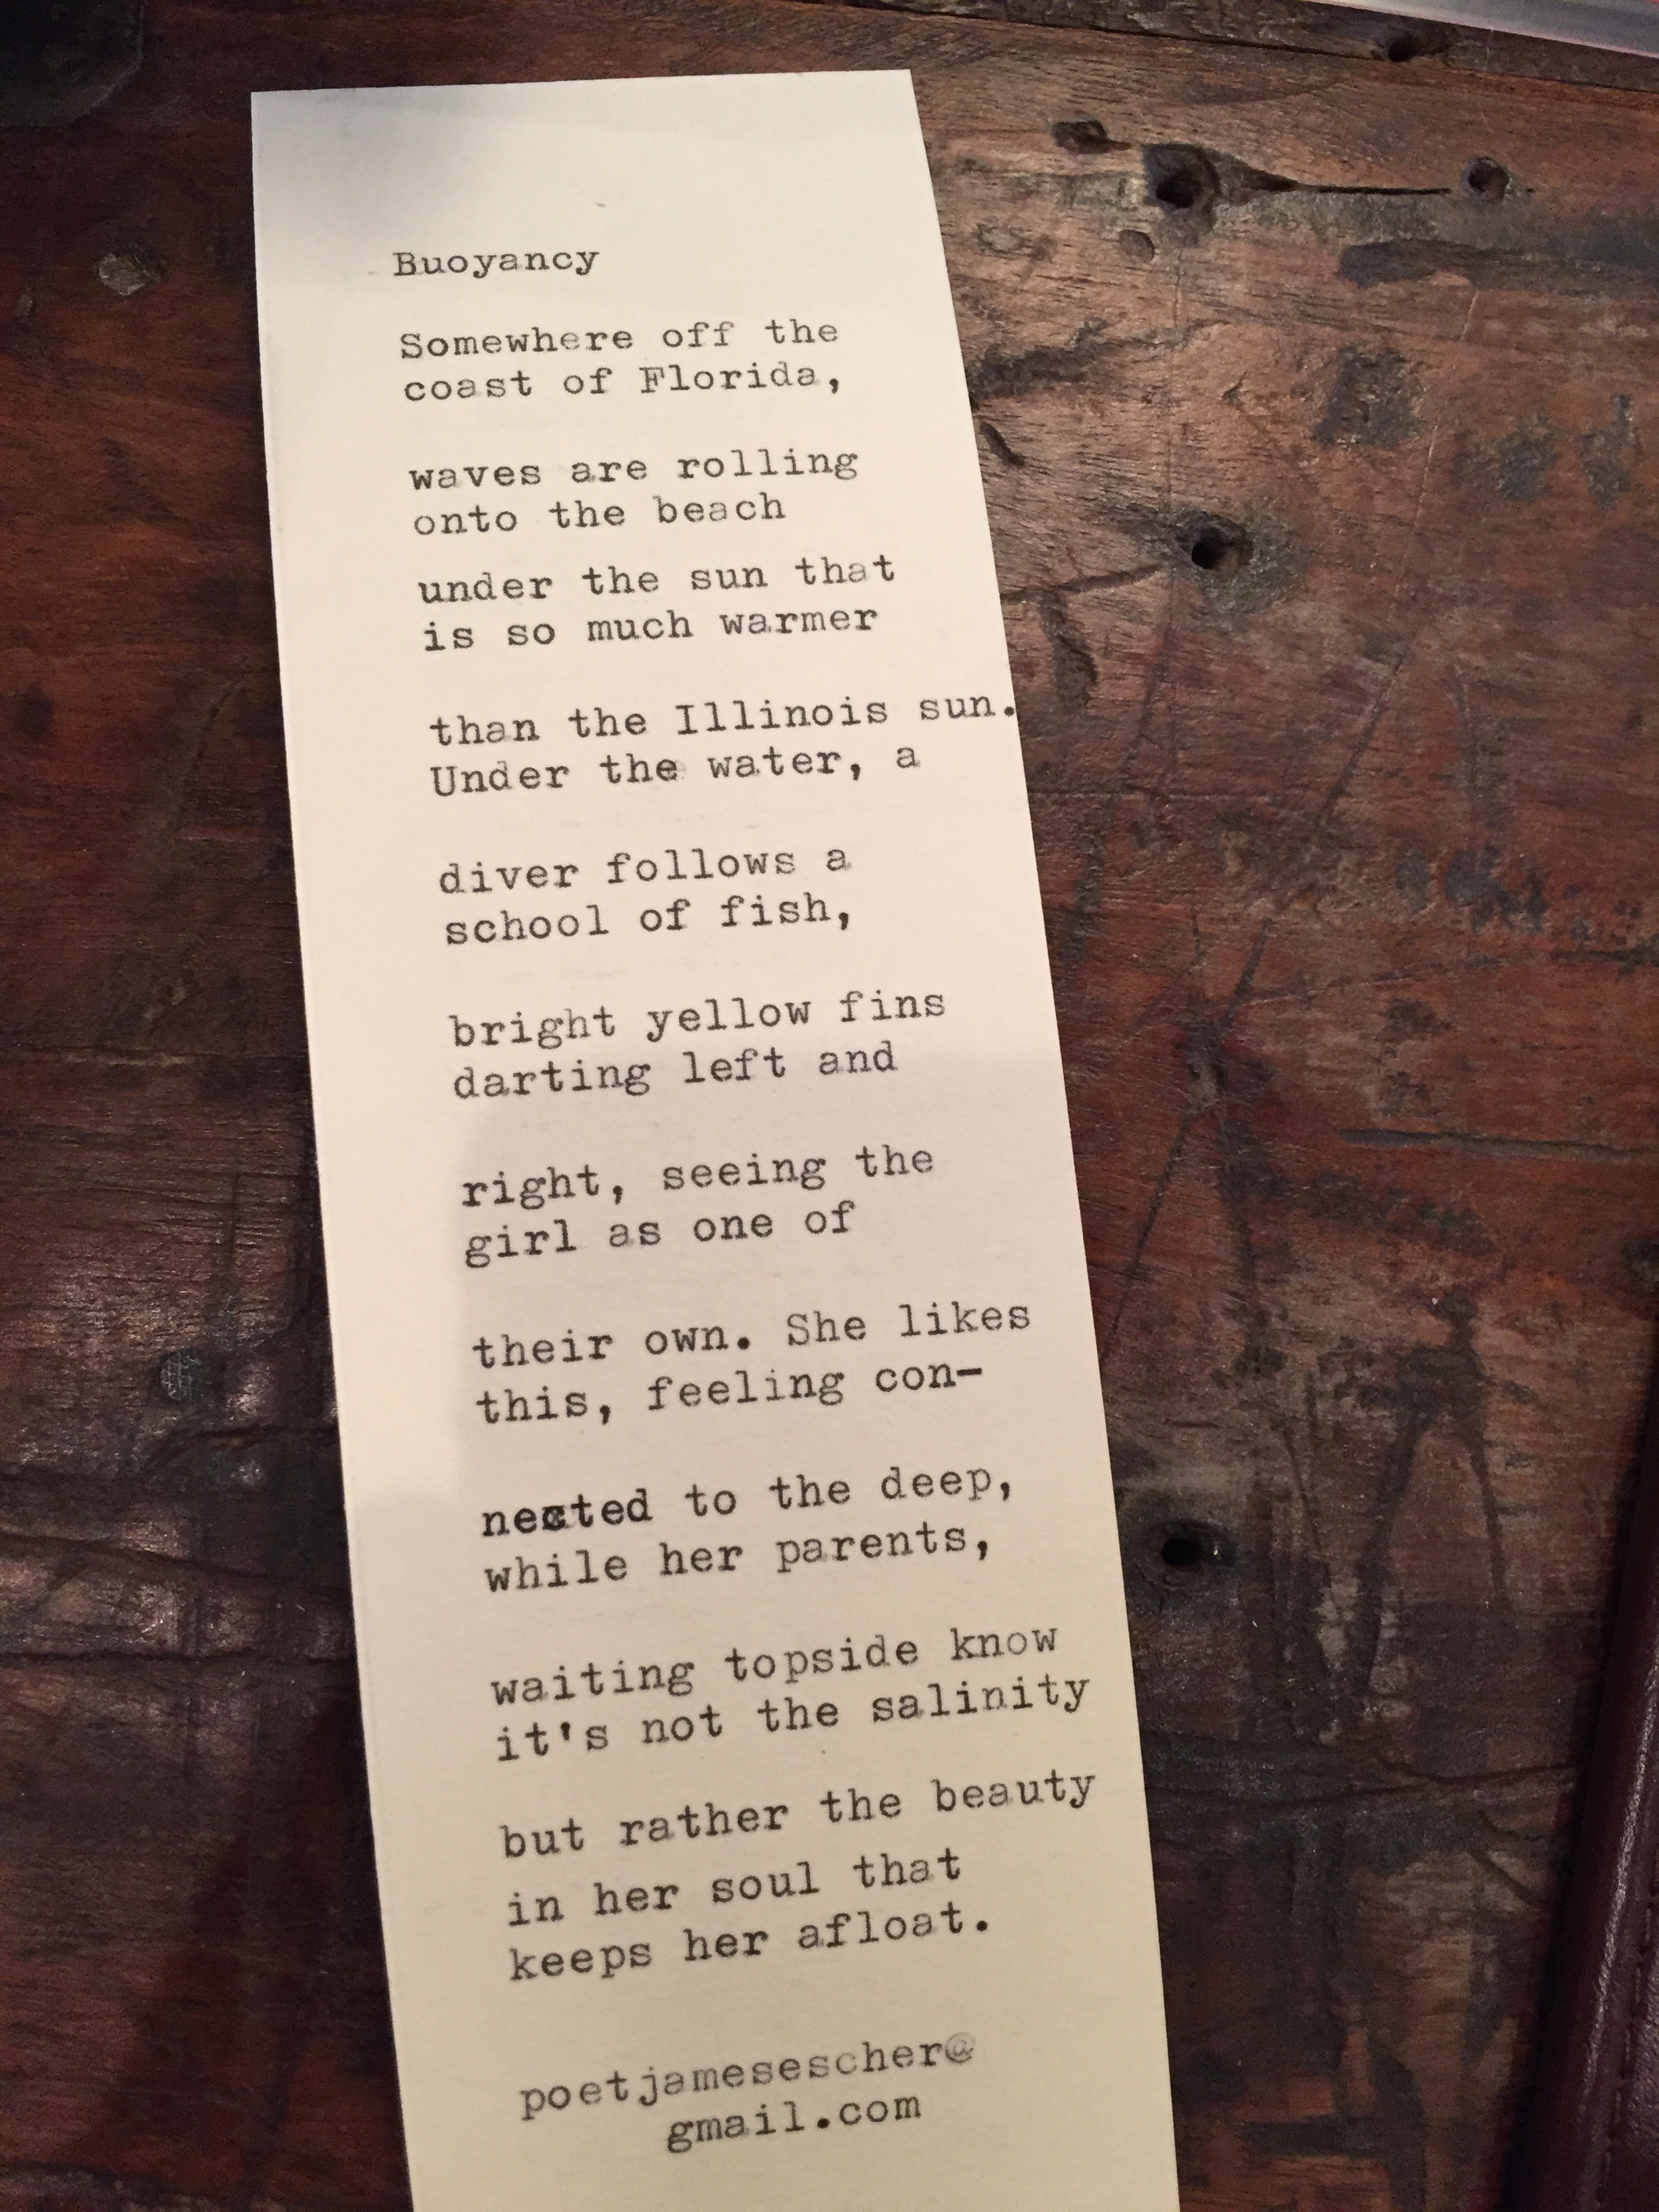 Buoyancy
Somewhere off the
coast of Florida,
waves are rolling
onto the beach
under the sun that
is so much warmer
than the Illinois sun.
Under the water, a
diver follows a
school of fish,
bright yellow fins
darting left and
right, seeing the
girl as one of
their own. She likes
this, feeling con-
nected to the deep,
while her parents,
waiting topside know
it's not the salinity
but rather the beauty
in her soul that
keeps her afloat.
poetjamesescher@
gmail.com